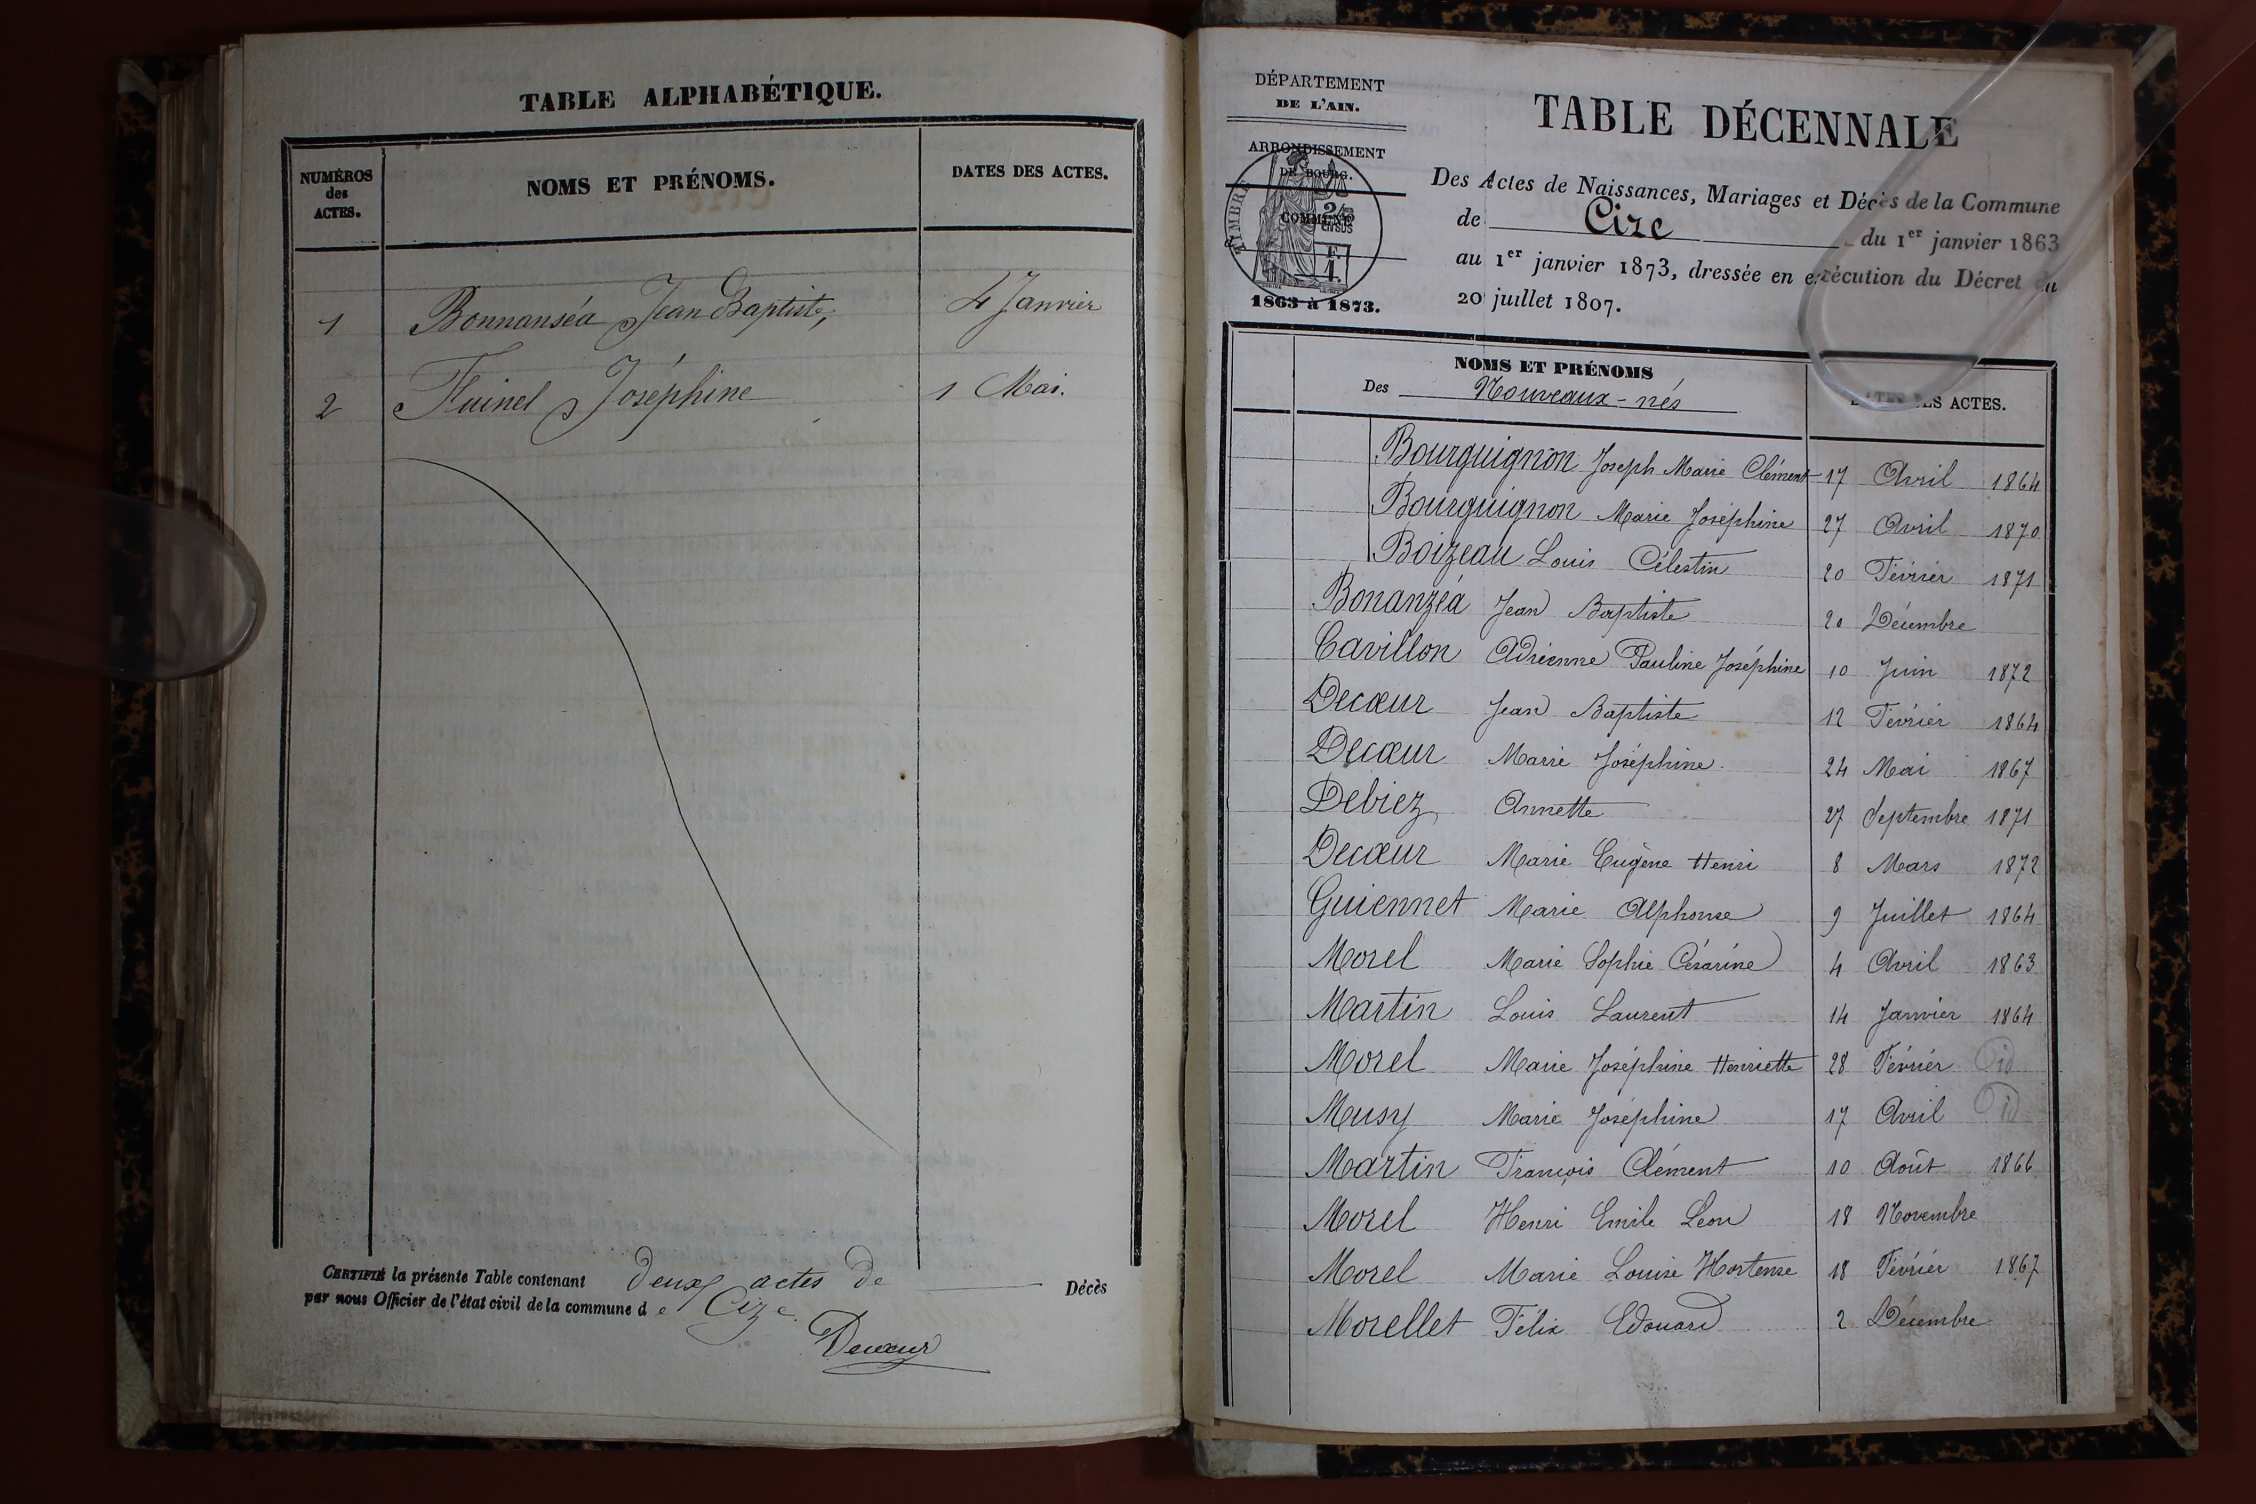 TABLE ALPHABÉTIQUE.
NUMÉROS des ACTES. NOMS ET PRÉNOMS. DATES DES ACTES.
1 Bonnanséa Jean Baptiste, 4 Janvier
2 Fluinel Joséphine 1 Mai.
CERTIFIÉ la présente Table contenant deux actes de Décès
par nous Officier de l'état civil de la commune de Cize.
Decœur
DÉPARTEMENT
DE L'AIN.
ARRONDISSEMENT
DE BOURG.
COMMUNE
1863 à 1873.
TABLE DÉCENNALE
Des Actes de Naissances, Mariages et Décès de la Commune
de Cize du 1er janvier 1863
au 1er janvier 1873, dressée en exécution du Décret du
20 juillet 1807.
NOMS ET PRÉNOMS
Des Nouveaux-nés DATES DES ACTES.
Bourguignon Joseph Marie Clément 17 Avril 1864
Bourguignon Marie Joséphine 27 Avril 1870
Boizeau Louis Célestin 20 Février 1871
Bonanzéa Jean Baptiste 20 Décembre
Cavillon Adrienne Pauline Joséphine 10 Juin 1872
Decœur Jean Baptiste 12 Février 1864
Decœur Marie Joséphine. 24 Mai 1867
Debiez Annette 27 Septembre 1871
Decœur Marie Eugène Henri 8 Mars 1872
Guiennet Marie Alphonse 9 Juillet 1864
Morel Marie Sophie Césarine 4 Avril 1863
Martin Louis Laurent 14 Janvier 1864
Morel Marie Joséphine Henriette 28 Février id
Musy Marie Joséphine 17 Avril id
Martin François Clément 10 Août 1866
Morel Henri Emile Léon 18 Novembre
Morel Marie Louise Hortense 18 Février 1867
Morellet Félix Edouard 2 Décembre